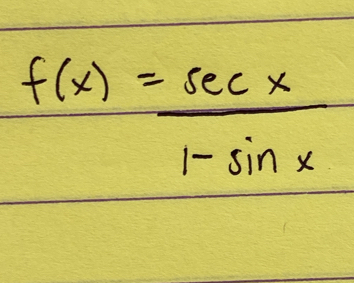 f(x) = sec x
1 - sin x